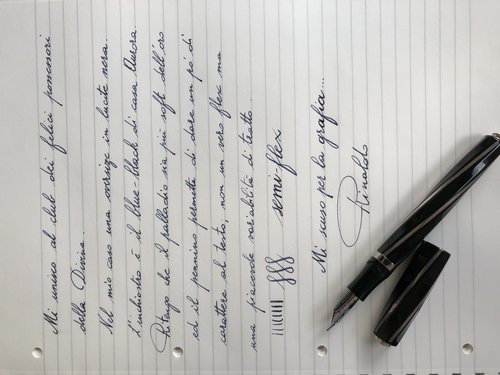 Mi unisco al club dei felici possessori
della Divina.
Nel mio caso una oversize in lucite nera.
L'inchiostro è il blue-black di casa Aurora.
Ritengo che il palladio sia più soft dell'oro
ed il pennino permette di dare un pó di
carattere al testo, non un vero flex ma
una piacevole variabilitá di tratto.
semi-flex
Mi scuso per la grafia...
Rinaldo